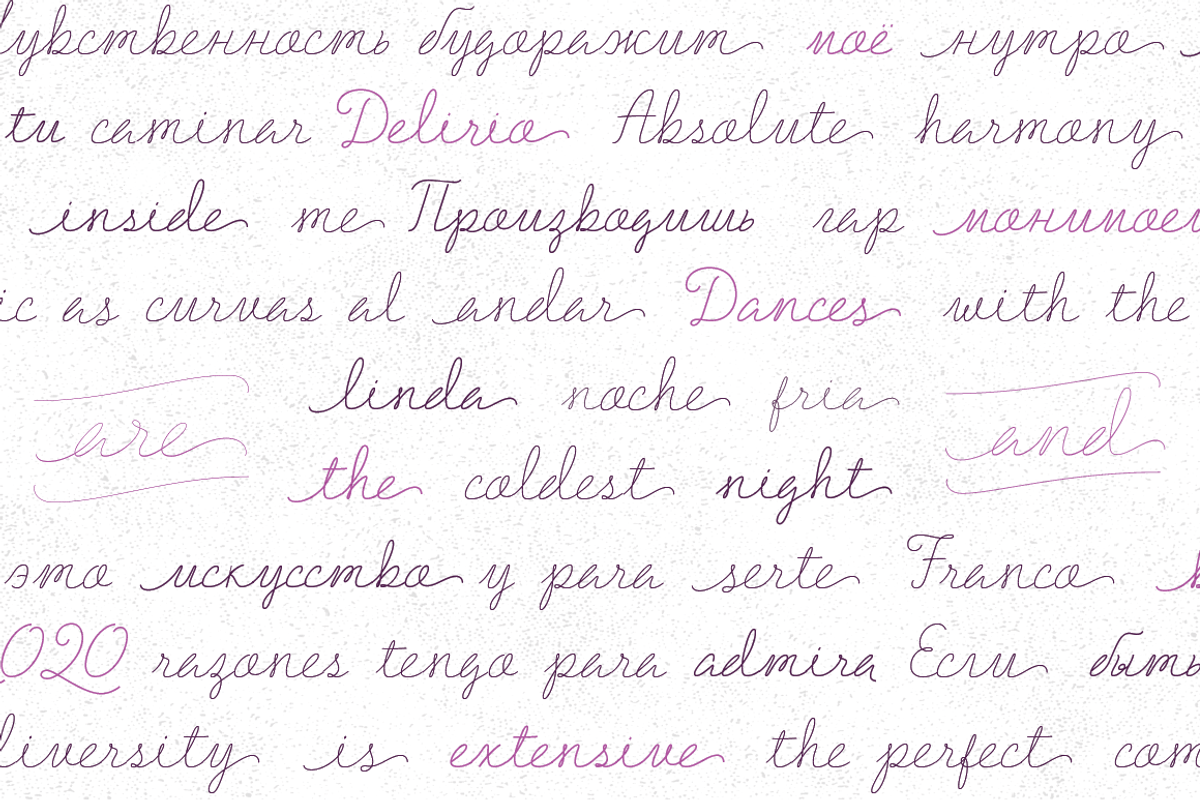 чувственность будоражит моё нутро
tu caminar Delirio Absolute harmony
inside me Производишь гар
as curvas al andar Dances with the
linda noche fria
are and
the coldest night
это искусство y para serte Franco
2020 razones tengo para admira Если быть
diversity is extensive the perfect